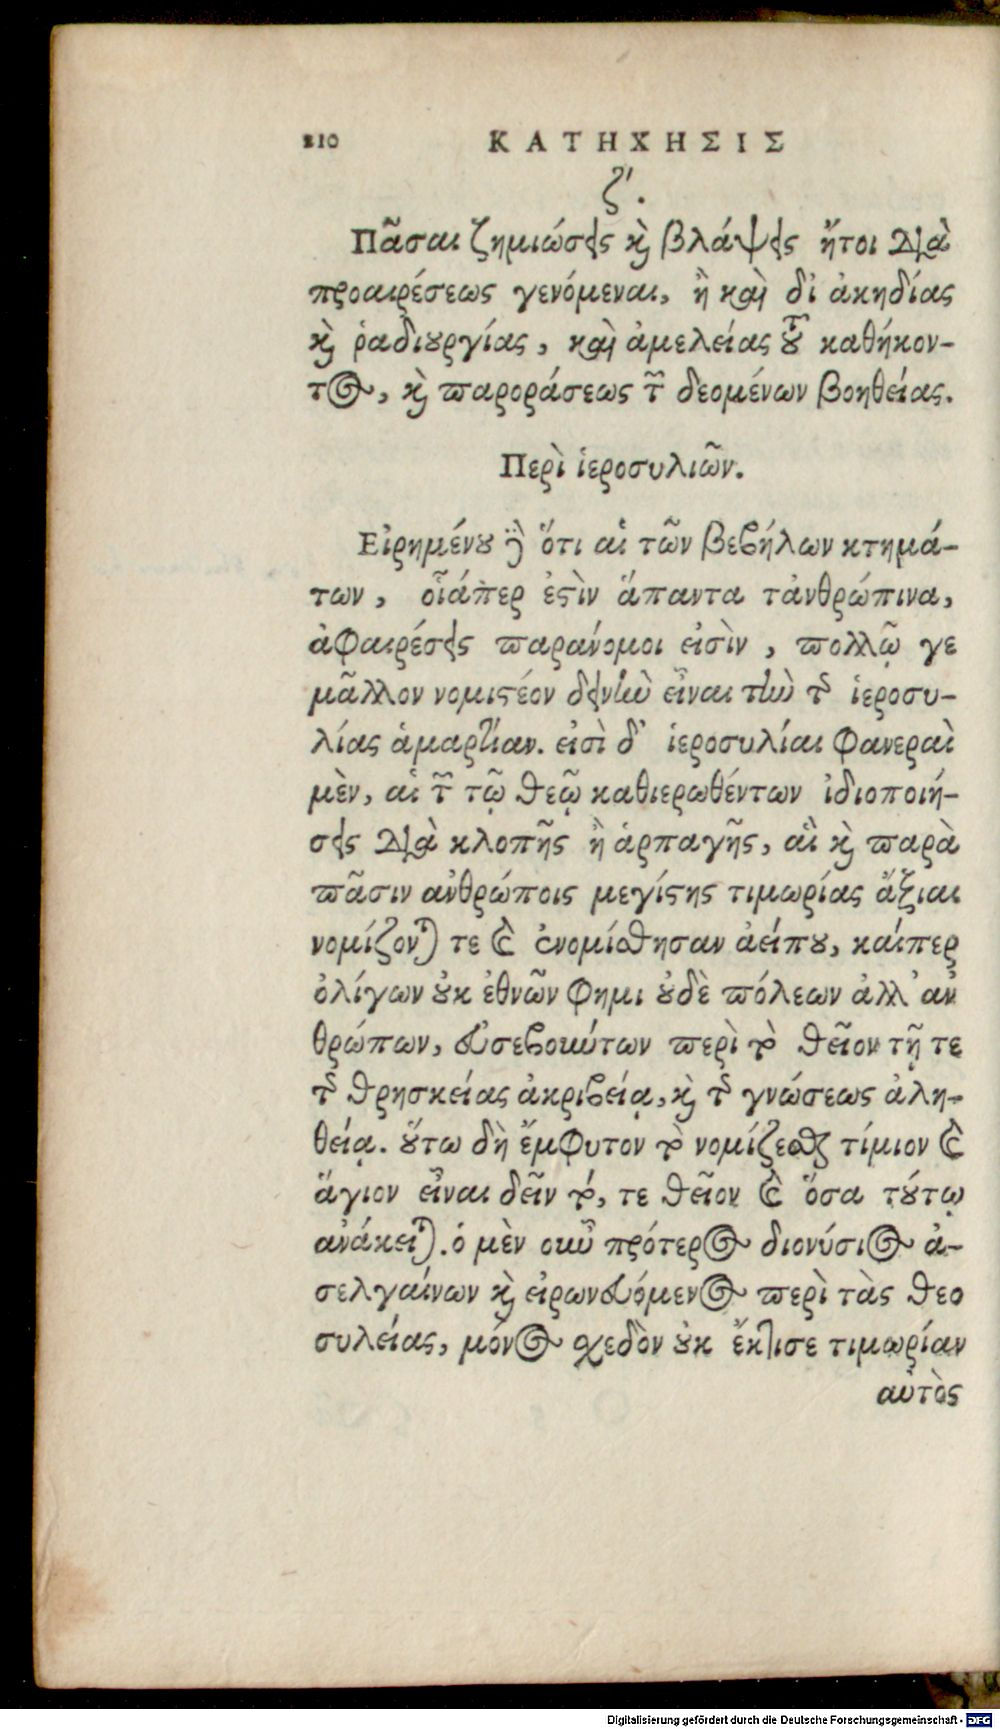 210 ΚΑΤΗΧΗΣΙΣ
ζ΄.
Πᾶσαι ζημιώσεις καὶ βλάψεις ἤτοι διὰ
προαιρέσεως γενόμεναι, ἢ καὶ δι᾽ ἀκηδίας
καὶ ῥαδιουργίας, καὶ ἀμελείας τοῦ καθήκον-
τος, καὶ παροράσεως τῶν δεομένων βοηθείας.
Περὶ ἱεροσυλιῶν.
Εἰρημένου δὲ ὅτι αἱ τῶν βεβήλων κτημά-
των, οἷάπερ ἐστὶν ἅπαντα τἀνθρώπινα,
ἀφαιρέσεις παράνομοι εἰσὶν, πολλῷ γε
μᾶλλον νομιστέον δεινὴν εἶναι τὴν τῆς ἱεροσυ-
λίας ἁμαρτίαν. εἰσὶ δ᾽ ἱεροσυλίαι φανεραὶ
μὲν, αἱ τῶν τῷ θεῷ καθιερωθέντων ἰδιοποιή-
σεις διὰ κλοπῆς ἢ ἁρπαγῆς, αἳ καὶ παρὰ
πᾶσιν ἀνθρώποις μεγίστης τιμωρίας ἄξιαι
νομίζονταί τε καὶ ἐνομίσθησαν ἀείπου, καίπερ
ὀλίγων οὐκ ἐθνῶν φημι οὐδὲ πόλεων ἀλλ᾽ ἀν
θρώπων, εὐσεβούντων περὶ τὸ θεῖον τῇ τε
τῆς θρησκείας ἀκριβείᾳ, καὶ τῆς γνώσεως ἀλη-
θείᾳ. οὕτω δὴ ἔμφυτον τὸ νομίζεσθαι τίμιον καὶ
ἅγιον εἶναι δεῖν τό, τε θεῖον καὶ ὅσα τούτῳ
ἀνάκειται. ὁ μὲν οὖν πρότερος διονύσιος ἀ-
σελγαίνων καὶ εἰρωνευόμενος περὶ τὰς θεο
συλείας, μόνος σχεδὸν οὐκ ἔκτισε τιμωρίαν
αὐτὸς
Digitalisierung gefördert durch die Deutsche Forschungsgemeinschaft - DFG